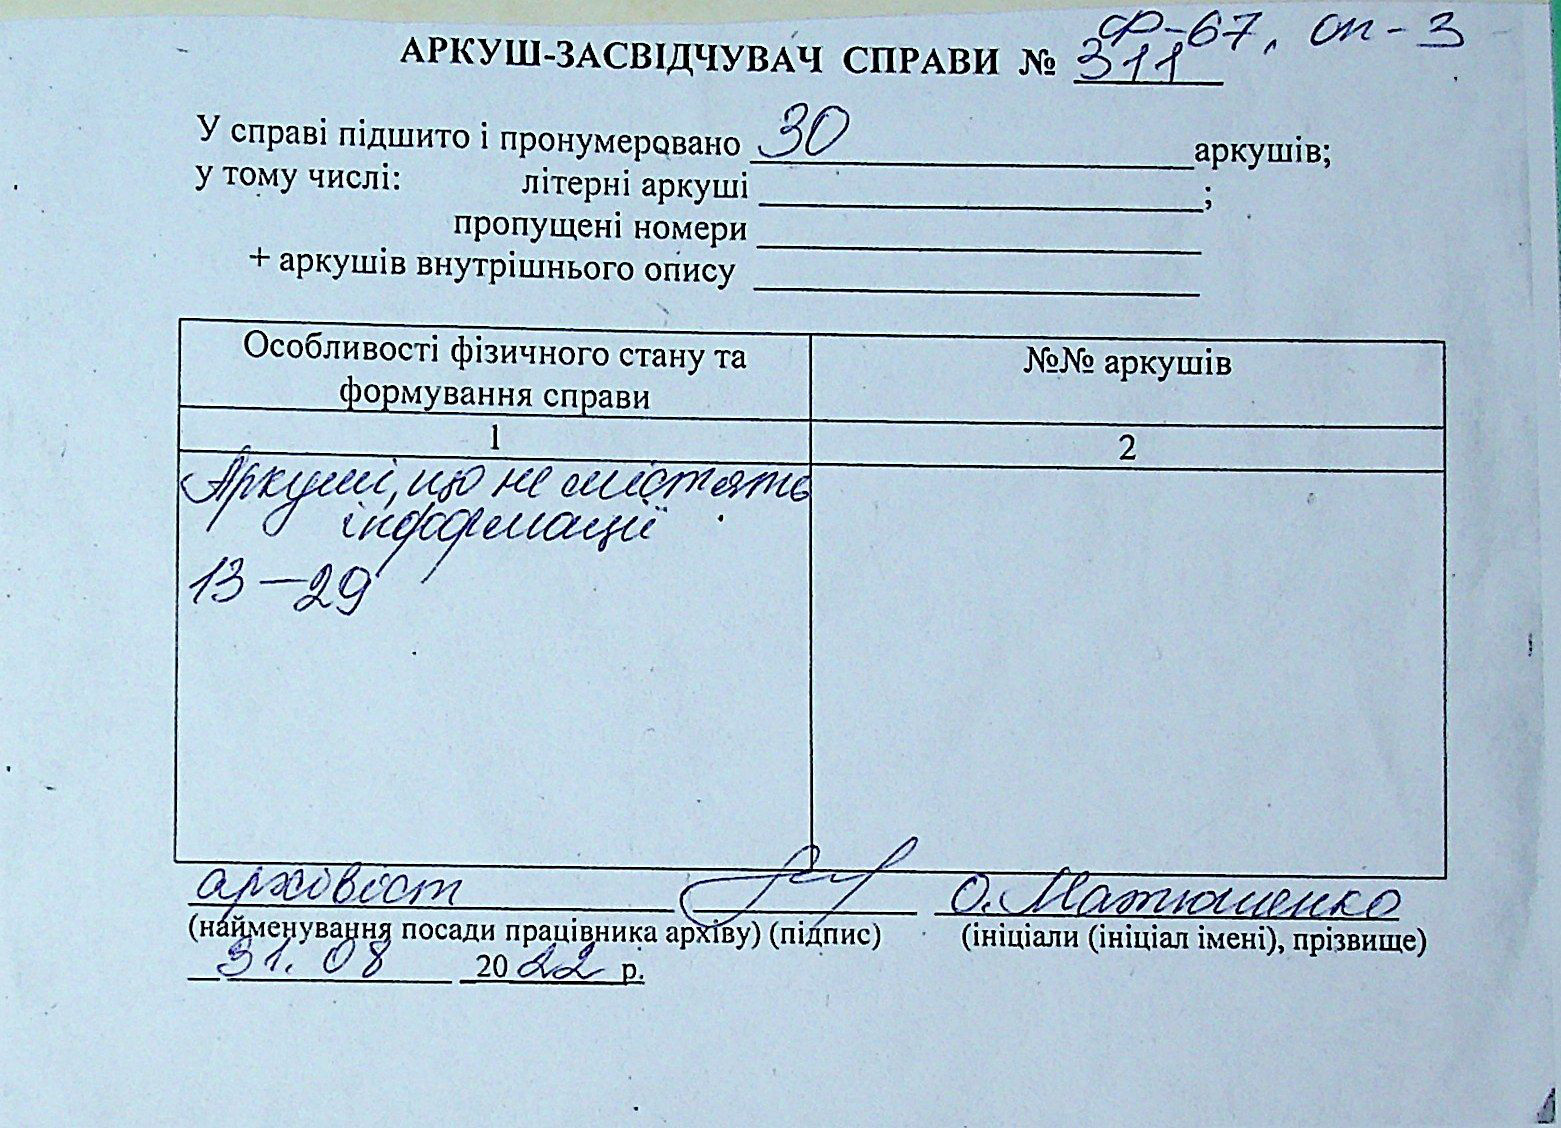 Ф-67, оп-3
АРКУШ-ЗАСВІДЧУВАЧ СПРАВИ № 311
У справі підшито і пронумеровано 30 аркушів;
у тому числі: літерні аркуші ;
пропущені номери
+ аркушів внутрішнього опису
Особливості фізичного стану та
формування справи
№№ аркушів
1 2
Аркуші, що не містять
інформації
13-29
архівіст О. Матюшенко
(найменування посади працівника архіву) (підпис) (ініціали (ініціал імені), прізвище)
31. 08 2022 р.